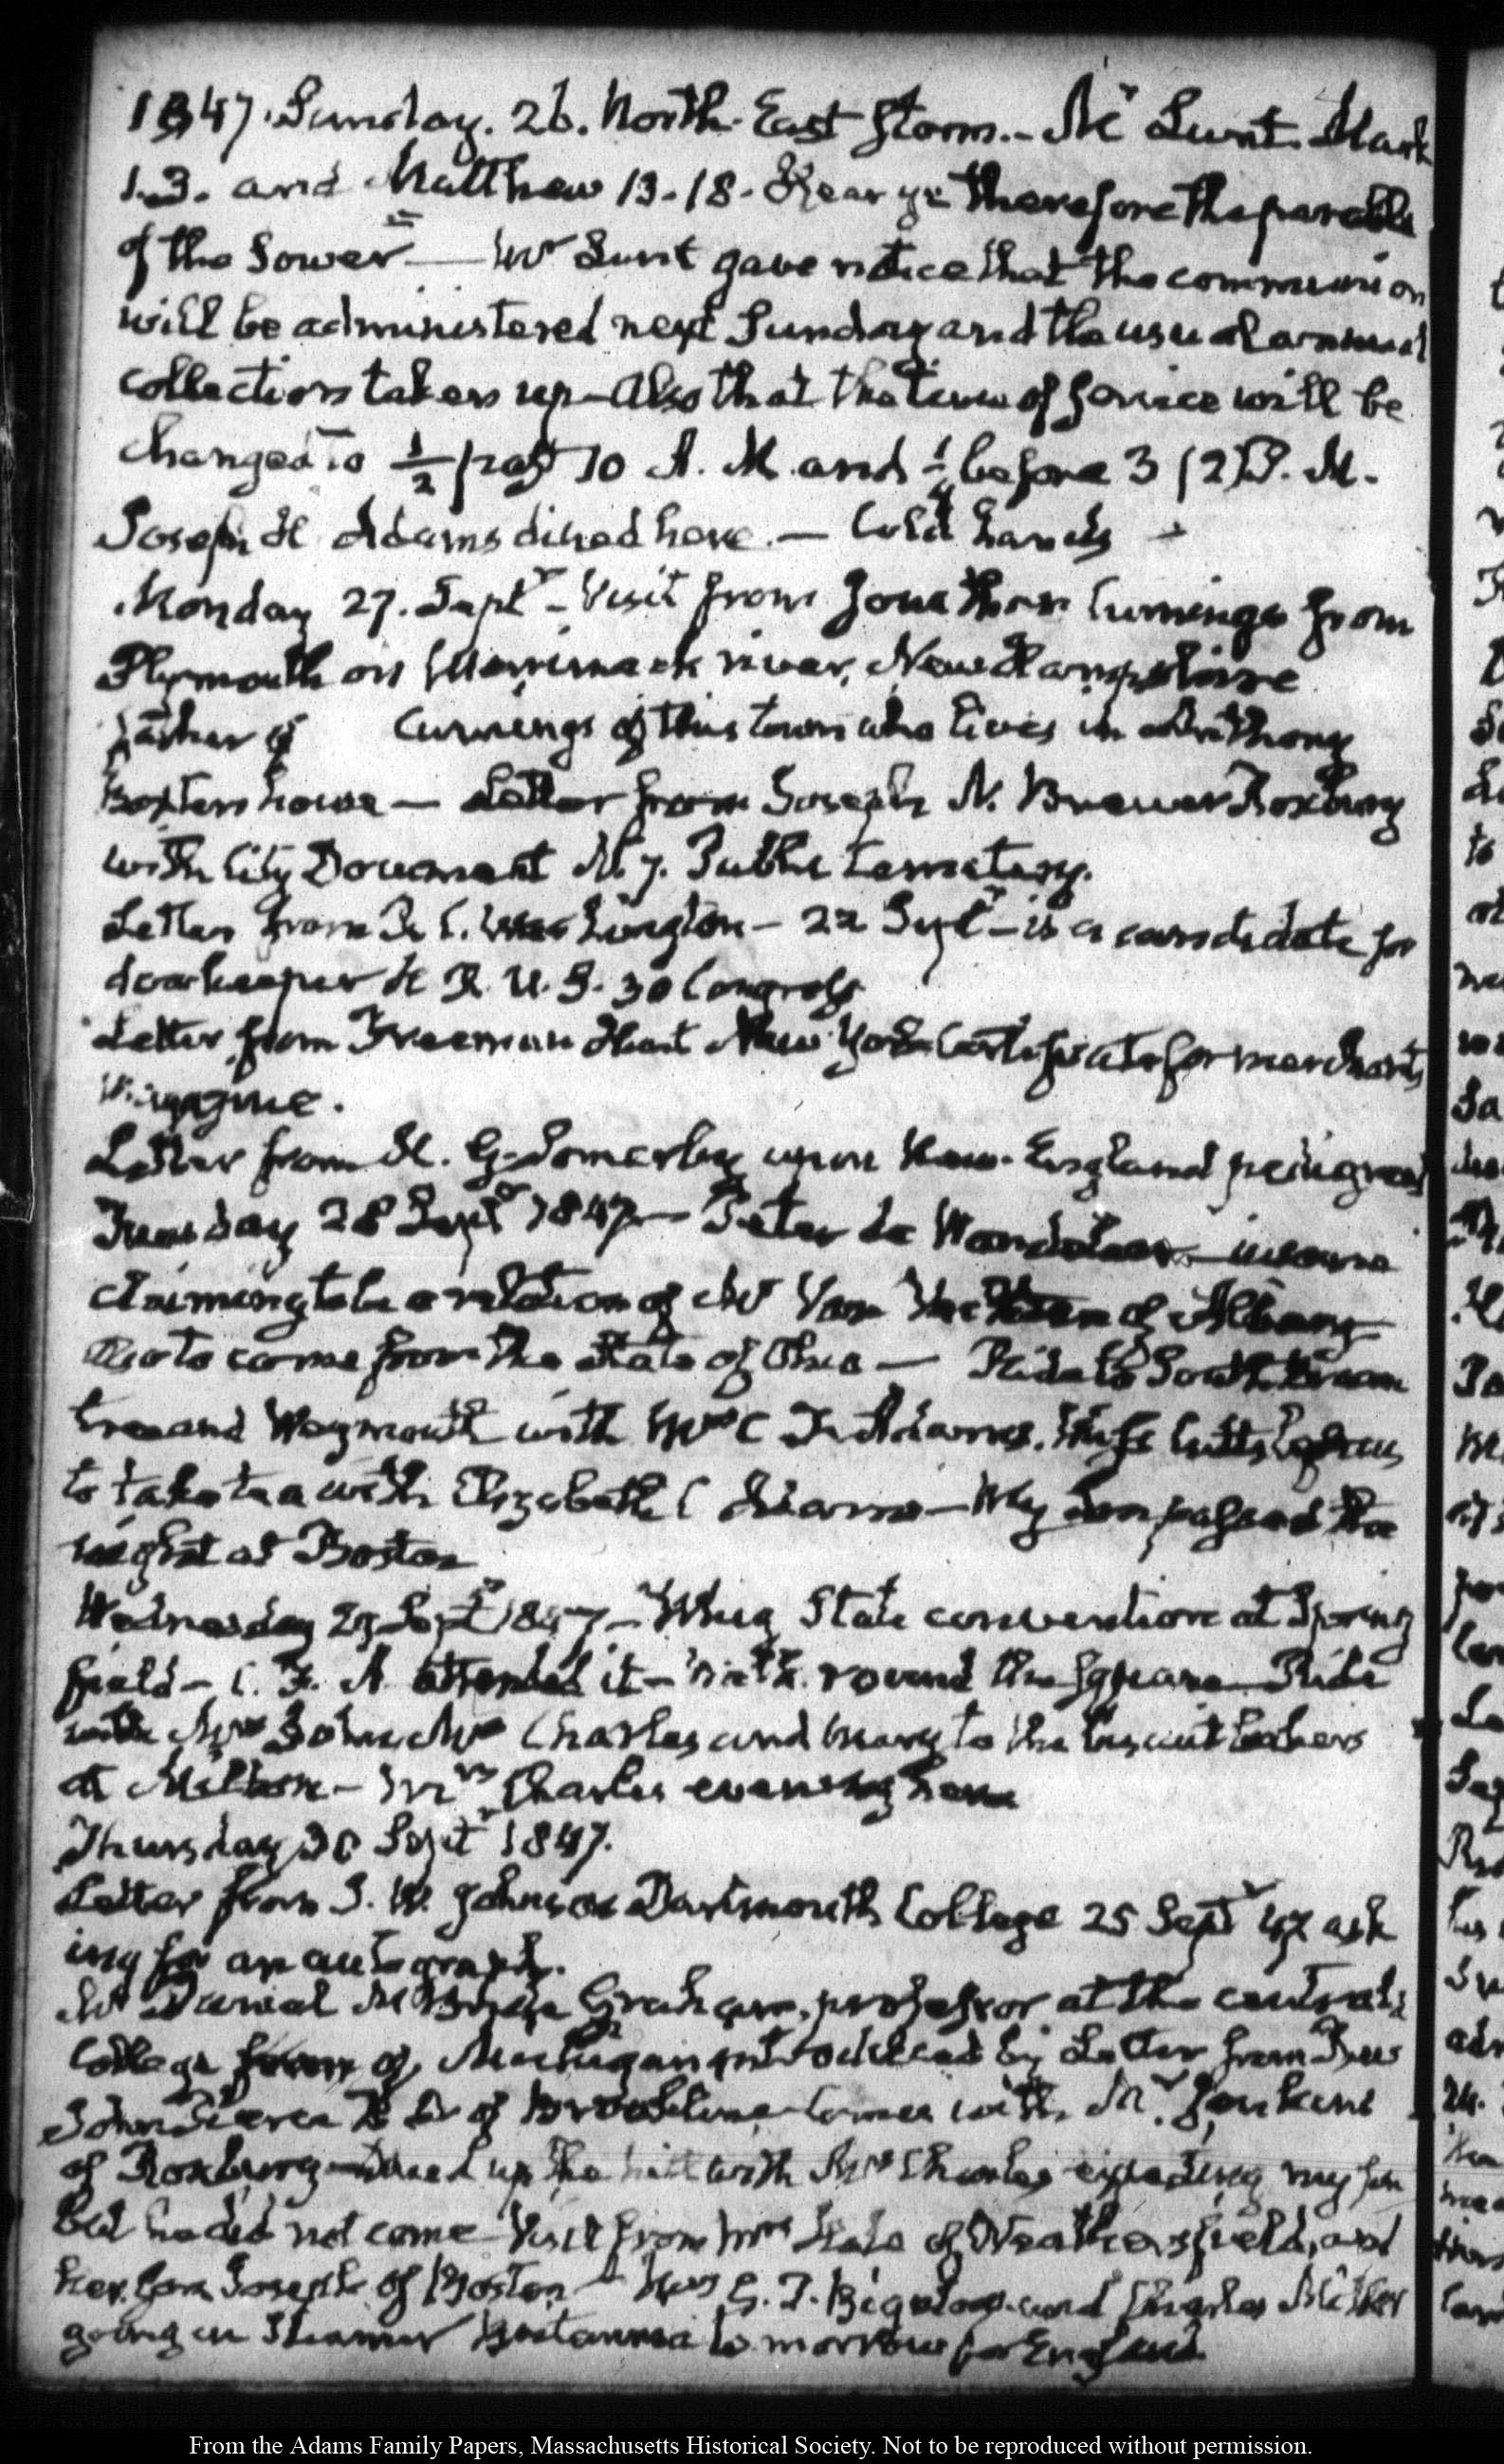 1847. Sunday. 26. North-East storm.- Mr Lunt. Mark
1.3. and Matthew 13.18. Hear ye therefore the parable
of the Sower — Mr Lunt gave notice that the communion
will be administered next Sunday and the usual annual
collection taken up - Also that the time of service will be
changed to 1/2 past 10 A. M. and 1/2 before 3 (2) P. M.
Joseph H Adams dined here. — Cold hands
Monday 27. Septr - Visit from Jonathan Cumings from
Plymouth on Merrimack river, New Hampshire
father of Cumings of this town who lives in Anthony
Baxters house — Letter from Joseph N. Brewer Roxbury
with City Document N. 7. Public Cemetery.
Letter from R. C. Washington - 22 Septr - is a candidate for
doorkeeper H R. U. S. 30 Congress
Letter from Freeman Hunt New York Certificate for merchants
Magazine.
Letter from H. G. Somerby upon New-England pedigrees
Tuesday 28 Septr 1847 — Peter de
claiming to be a relation of Mr Van Vechten of Albany
also to come from the State of Ohio — Ride to South Brain
tree and Weymouth with Mrs C F. Adams.
to take tea with Elizabeth C Adams - My Son passed the
night at Boston
Wednesday 29 Septr 1847 - Whig State convention at Spring
field - C. F. A attended it - round the square - Ride
with Mrs John Mrs Charles and Mary to the biscuit bakers
at Milton - Mrs Charles evening here
Thursday 30 Septr 1847.
Letter from S. W. Johnson Dartmouth College 25 Septr 47 ask
ing for an autograph.
Mr Daniel McBride Graham, professor at the central
College of Michigan introduced by Letter from Revd
John Pierce D. D. of Brookline - Comes with Mr Jenkins
of Roxbury - Dined up the hill with Mrs Charles expecting my son
but he did not come - Visit from Mrs Hale of Weathersfield, and
her son Joseph of Boston - Mrs G. T. Bigelow and Charles Miller
going in Steamer Britannia to morrow for England.
From the Adams Family Papers, Massachusetts Historical Society. Not to be reproduced without permission.